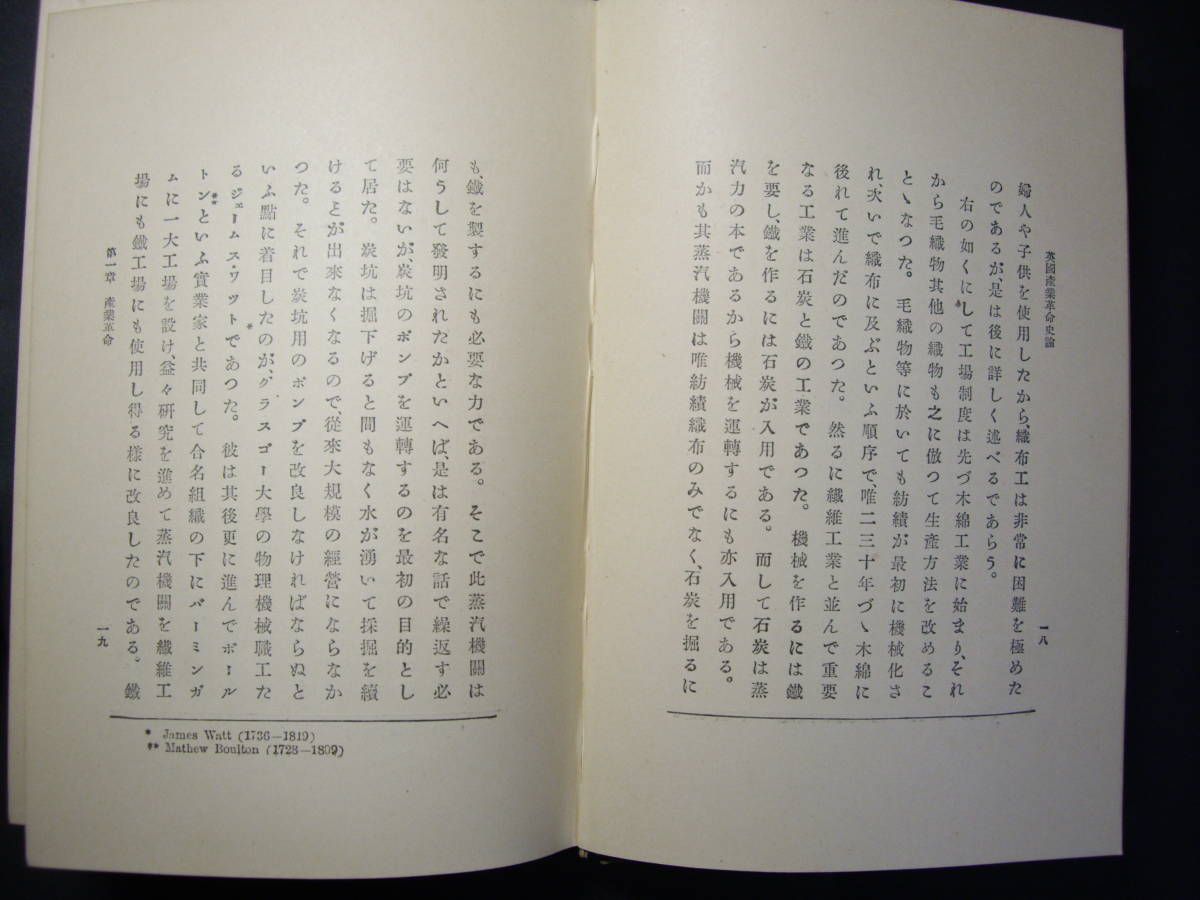 英國產業革命史論
一八
婦人や子供を使用したから、織布工は非常に困難を極めた
のであるが、是は後に詳しく述べるであらう。
右の如くにして工場制度は先づ木綿工業に始まり、それ
から毛織物其他の織物も之に倣つて生產方法を改めるこ
とゝなつた。毛織物等に於いても紡績が最初に機械化さ
れ、次いで織布に及ぶといふ順序で、唯二三十年づゝ木綿に
後れて進んだのであつた。然るに纖維工業と並んで重要
なる工業は石炭と鐵の工業であつた。機械を作るには鐵
を要し、鐵を作るには石炭が入用である。而して石炭は蒸
汽力の本であるから機械を運轉するにも亦入用である。
而かも其蒸汽機關は唯紡績織布のみでなく、石炭を掘るに
も、鐵を製するにも必要な力である。そこで此蒸汽機關は
何うして發明されたかといへば、是は有名な話で繰返す必
要はないが、炭坑のポンプを運轉するのを最初の目的とし
て居た。炭坑は掘下げると間もなく水が湧いて採掘を續
けることが出來なくなるので、從來大規模の經營にならなか
つた。それで炭坑用のポンプを改良しなければならぬと
いふ點に着目したのが、グラスゴー大學の物理機械職工た
るジェームス・ワツト*であつた。彼は其後更に進んでボール
トン**といふ實業家と共同して合名組織の下にバーミンガ
ムに一大工場を設け、益々研究を進めて蒸汽機關を纖維工
場にも鐵工場にも使用し得る樣に改良したのである。鐵
第一章 產業革命
一九
* James Watt (1736—1819)
** Mathew Boulton (1728—1809)